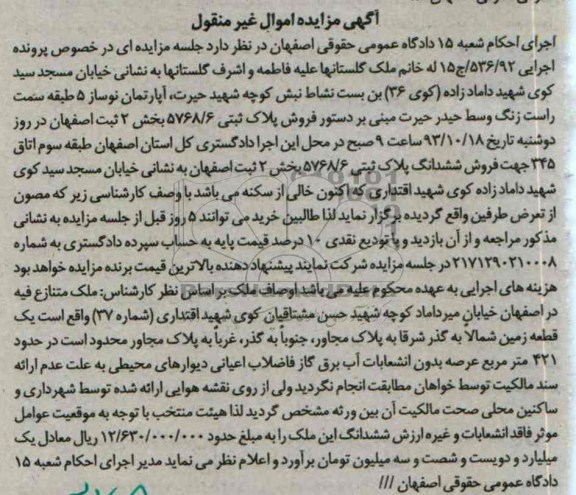 آگهی مزایده اموال غیر منقول
اجرای احکام شعبه ۱۵ دادگاه عمومی حقوقی اصفهان در نظر دارد جلسه مزایده ای در خصوص پرونده
اجرایی ۵۳۶/۹۲/ج۱۵ له خانم ملک گلستانها علیه فاطمه و اشرف گلستانها به نشانی خیابان مسجد سید
کوی شهید داماد زاده (کوی ۳۶) بن بست نشاط نبش کوچه شهید حیرت، آپارتمان نوساز ۵ طبقه سمت
راست زنگ وسط حیدر حیرت مبنی بر دستور فروش پلاک ثبتی ۵۷۶۸/۶ بخش ۲ ثبت اصفهان در روز
دوشنبه تاریخ ۹۳/۱۰/۱۸ ساعت ۹ صبح در محل این اجرا دادگستری کل استان اصفهان طبقه سوم اتاق
۳۴۵ جهت فروش ششدانگ پلاک ثبتی ۵۷۶۸/۶ بخش ۲ ثبت اصفهان به نشانی خیابان مسجد سید کوی
شهید داماد زاده کوی شهید اقتداری که اکنون خالی از سکنه می باشد با وصف کارشناسی زیر که مصون
از تعرض طرفین واقع گردیده برگزار نماید لذا طالبین خرید می توانند ۵ روز قبل از جلسه مزایده به نشانی
مذکور مراجعه و از آن بازدید و با تودیع نقدی ۱۰ درصد قیمت پایه به حساب سپرده دادگستری به شماره
۲۱۷۱۲۹۰۲۱۰۰۰۸ در جلسه مزایده شرکت نمایند پیشنهاد دهنده بالاترین قیمت برنده مزایده خواهد بود
هزینه های اجرایی به عهده محکوم علیه می باشد اوصاف ملک بر اساس نظر کارشناس: ملک متنازع فیه
در اصفهان خیابان میرداماد کوچه شهید حسن مشتاقیان کوی شهید اقتداری (شماره ۲۷) واقع است یک
قطعه زمین شمالا به گذر شرقا به پلاک مجاور، جنوباً به گذر، غرباً به پلاک مجاور محدود است در حدود
۴۲۱ متر مربع عرصه بدون انشعابات آب برق گاز فاضلاب اعیانی دیوارهای محیطی به علت عدم ارائه
سند مالکیت توسط خواهان مطابقت انجام نگردید ولی از روی نقشه هوایی ارائه شده توسط شهرداری و
ساکنین محلی صحت مالکیت آن بین ورثه مشخص گردید لذا هیئت منتخب با توجه به موقعیت عوامل
موثر فاقد انشعابات و غیره ارزش ششدانگ این ملک را به مبلغ حدود ۱۲/۶۳۰/۰۰۰/۰۰۰ ریال معادل یک
میلیارد و دویست و شصت و سه میلیون تومان برآورد و اعلام نظر می نماید مدیر اجرای احکام شعبه ۱۵
دادگاه عمومی حقوقی اصفهان ///